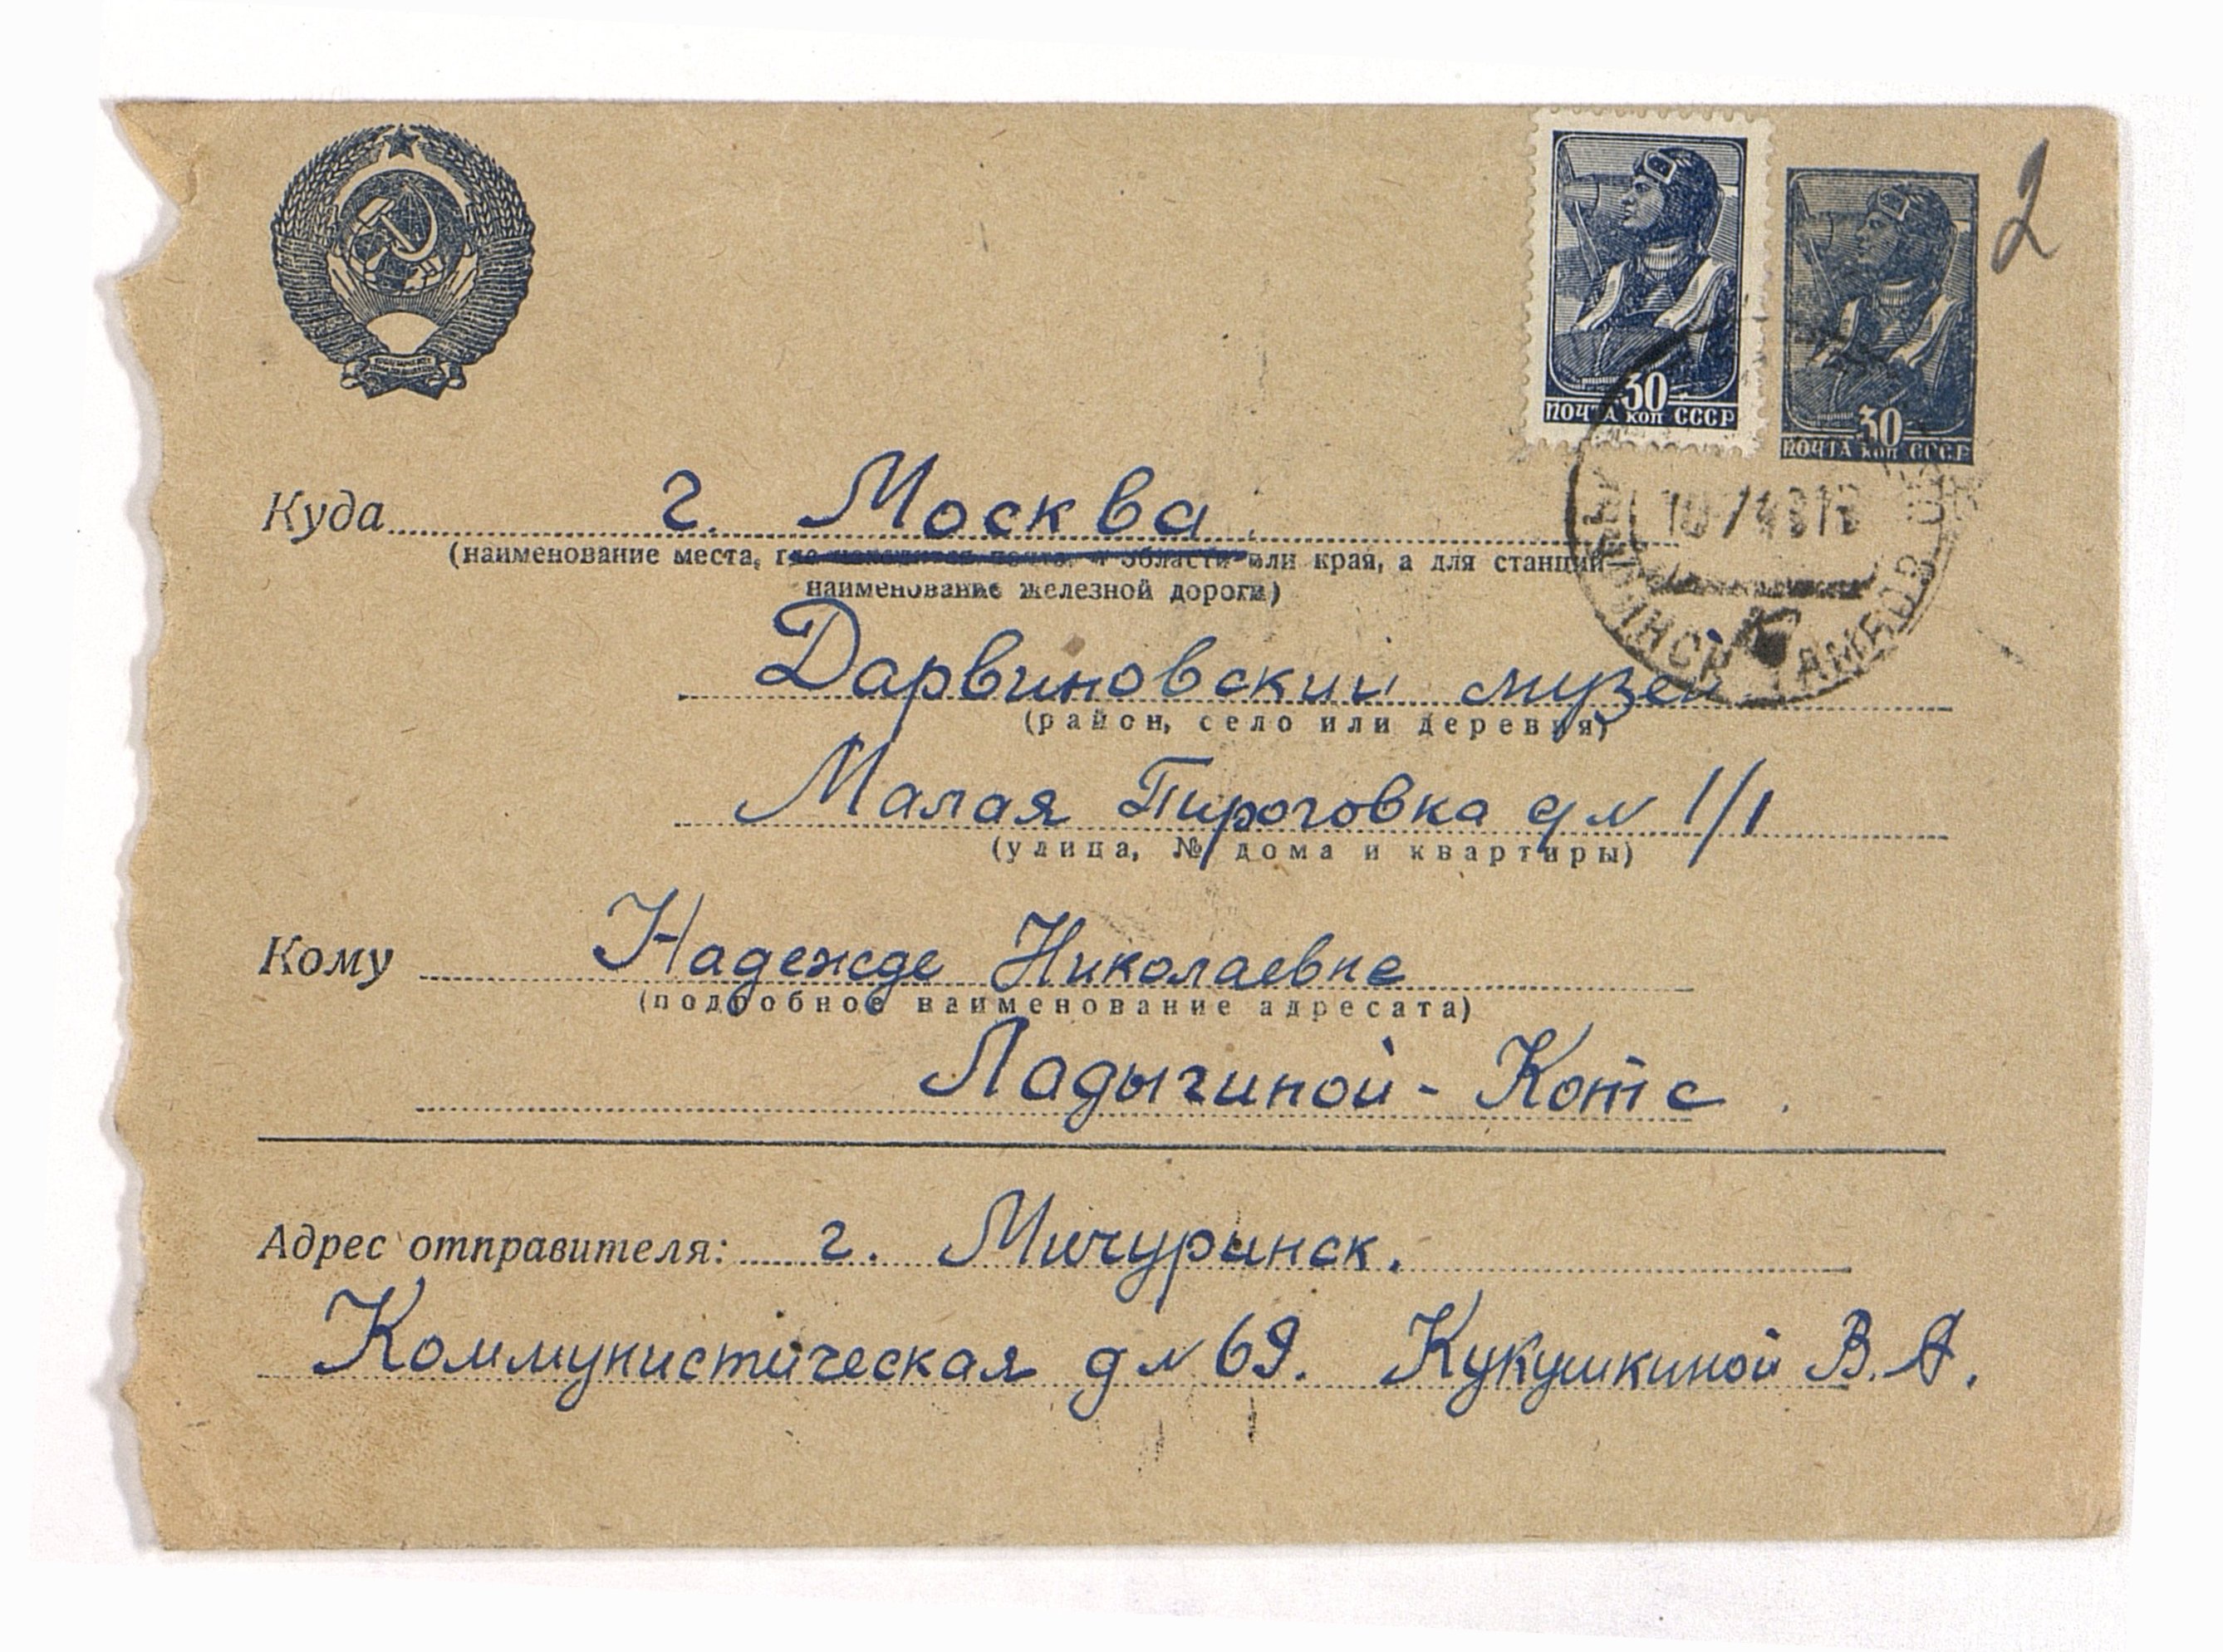 2
30
ПОЧТА КОП СССР
30
ПОЧТА КОП СССР
Куда г. Москва.
(наименование места, где находится почта и области или края, а для станций—
наименование железной дороги)
Дарвиновский музей.
(район, село или деревня)
Малая Пироговка д № 1/1
(улица, № дома и квартиры)
Кому Надежде Николаевне
(подробное наименование адресата)
Ладыгиной - Котс.
Адрес отправителя: г. Мичуринск.
Коммунистическая д № 69. Кукушкиной В. А.
ТАМБОВ